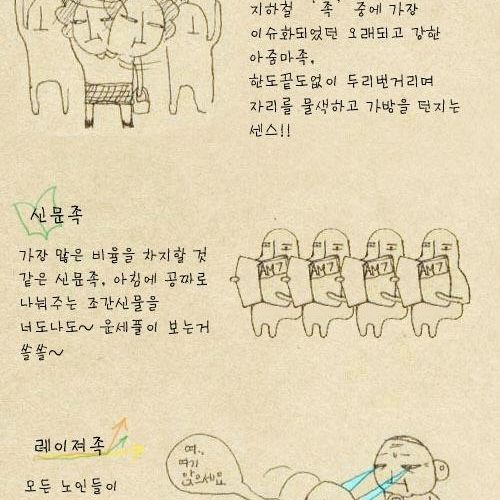 지하철 '족' 중에 가장
이슈화되었던 오래되고 강한
아줌마족,
한도끝도없이 두리번거리며
자리를 물색하고 가방을 던지는
센스!!
신문족
가장 많은 비율을 차지할 것
같은 신문족, 아침에 공짜로
나눠주는 조간신물을
너도나도~ 운세풀이 보는거
쏠쏠~
AM7 AM7 AM7 AM7
레이져족
여..
여기
앉으세요
모든 노인들이